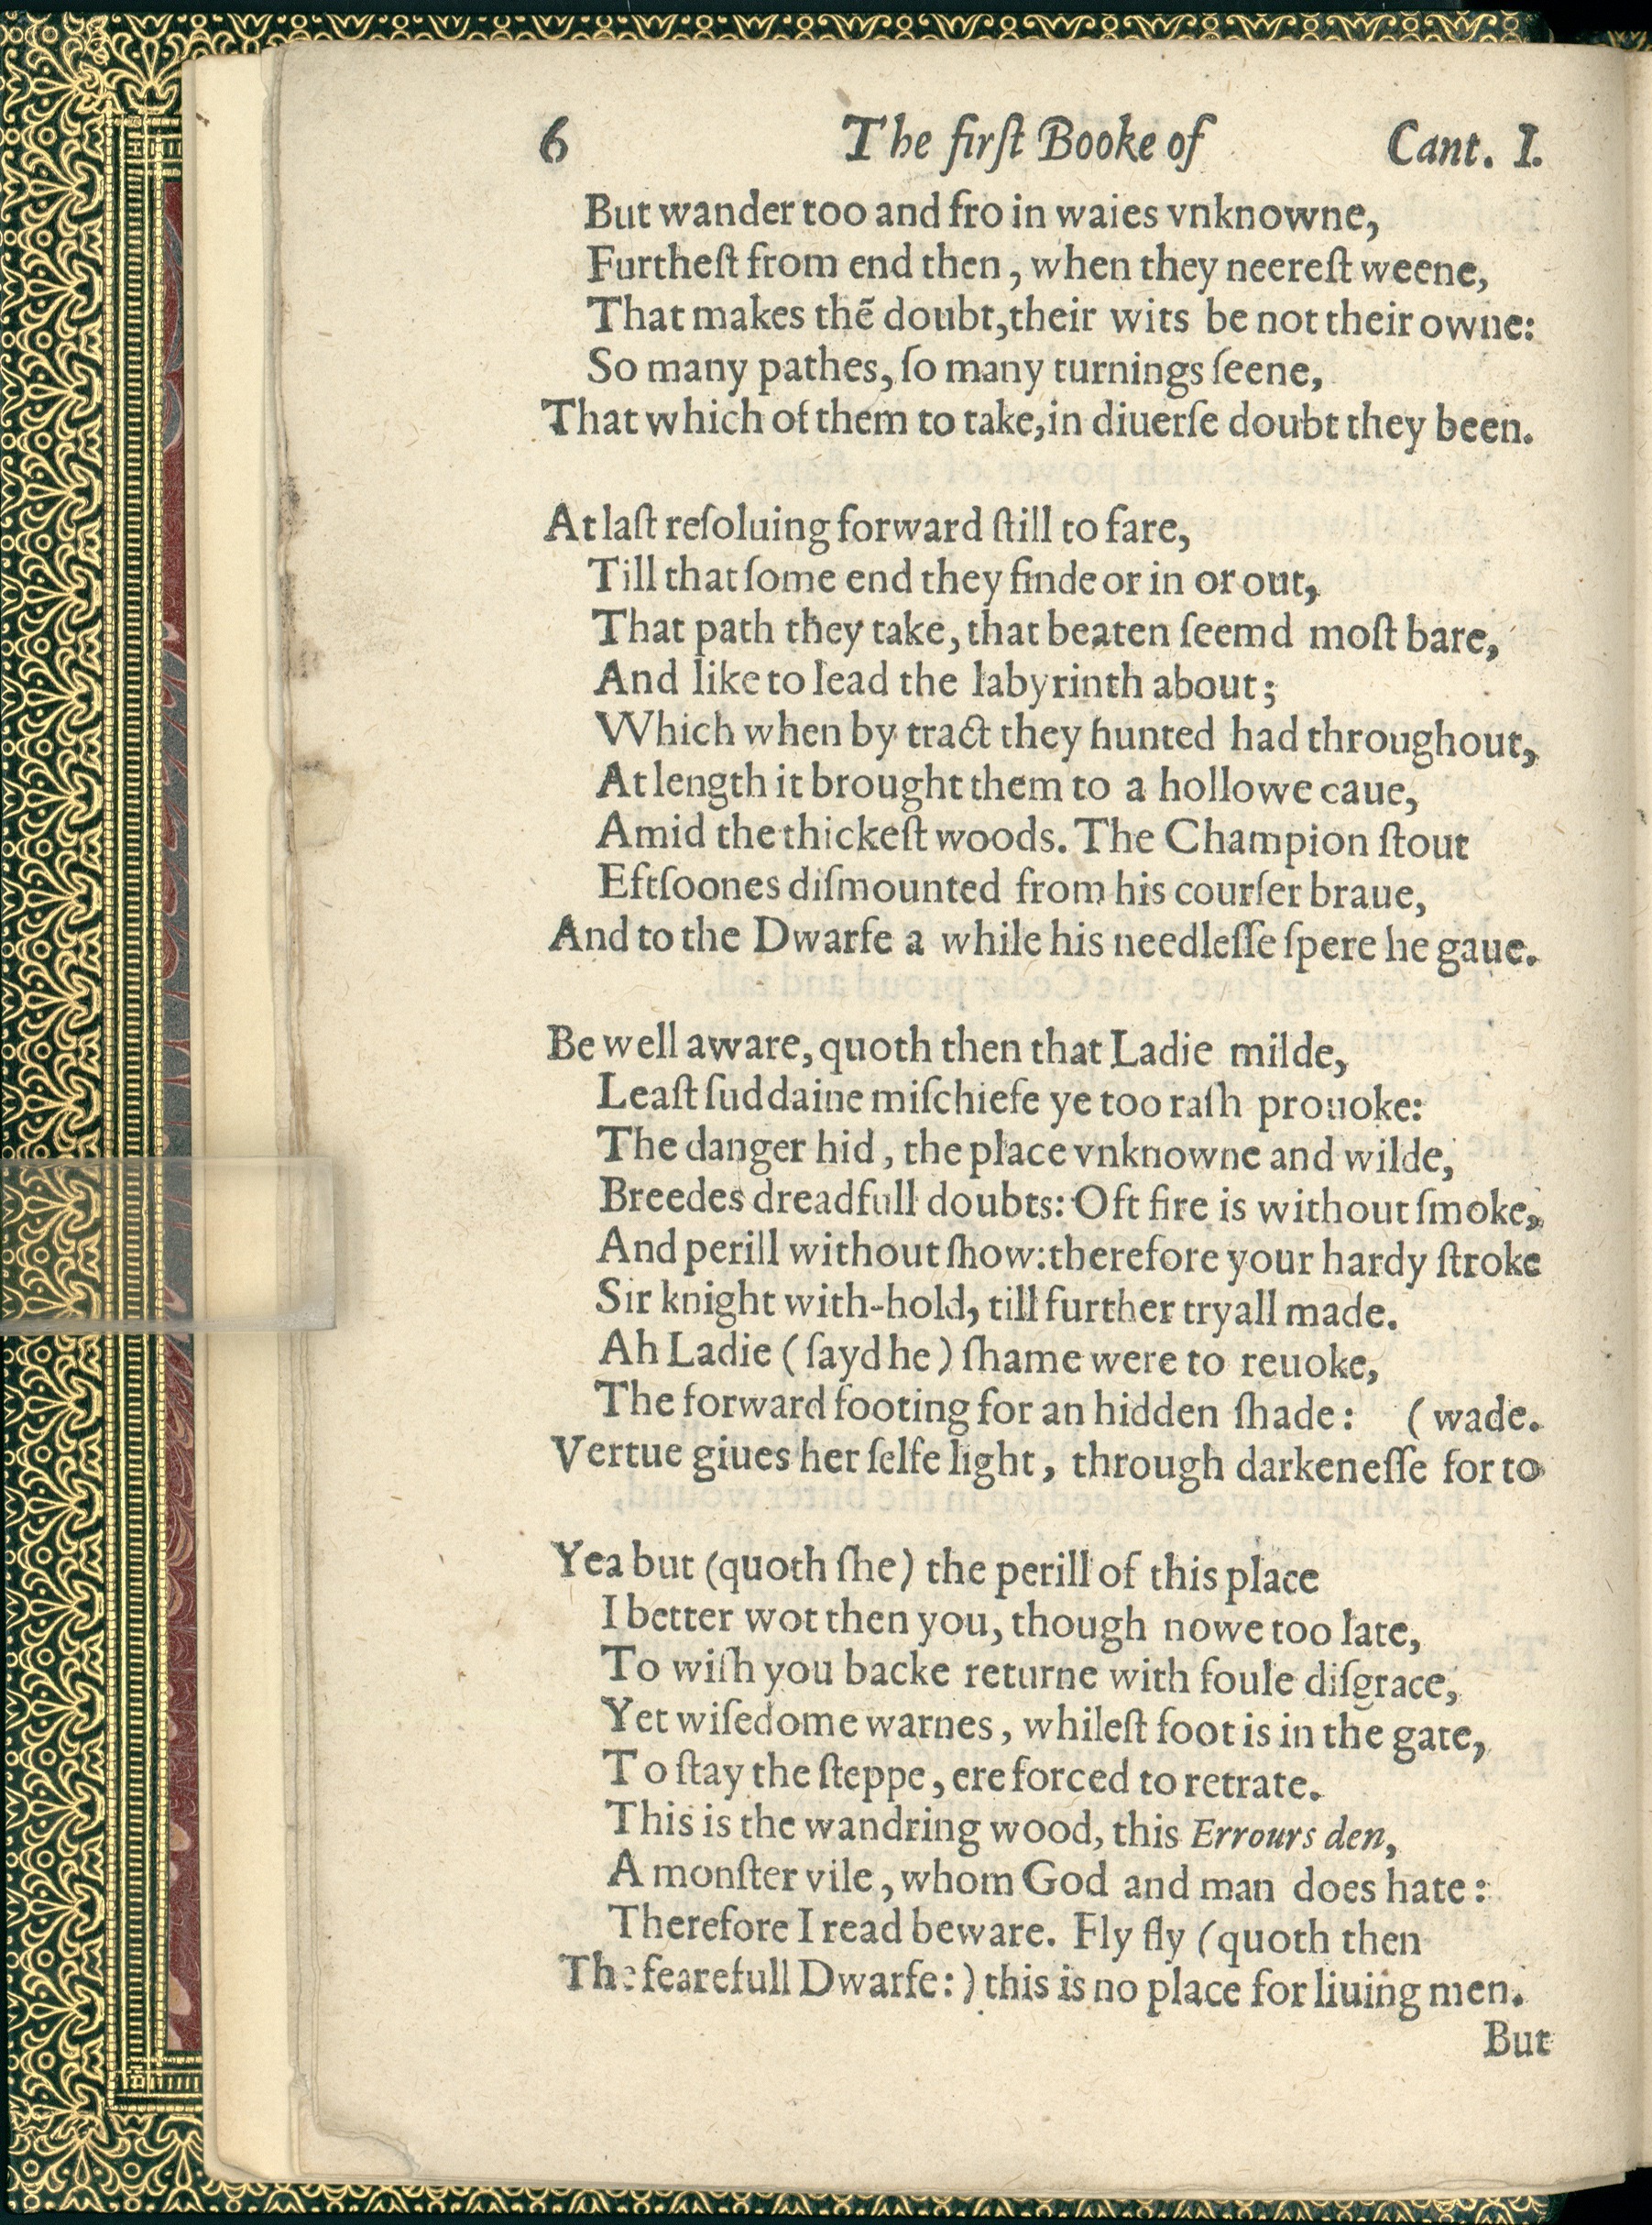 6 The firſt Booke of Cant. I.
But wander too and fro in waies vnknowne,
Furtheſt from end then, when they neereſt weene,
That makes thē doubt, their wits be not their owne:
So many pathes, ſo many turnings ſeene,
That which of them to take, in diuerſe doubt they been.
At laſt reſoluing forward ſtill to fare,
Till that ſome end they finde or in or out,
That path they take, that beaten ſeemd moſt bare,
And like to lead the labyrinth about;
Which when by tract they hunted had throughout,
At length it brought them to a hollowe caue,
Amid the thickeſt woods. The Champion ſtout
Eftſoones diſmounted from his courſer braue,
And to the Dwarfe a while his needleſſe ſpere he gaue.
Be well aware, quoth then that Ladie milde,
Leaſt ſuddaine miſchiefe ye too raſh prouoke:
The danger hid, the place vnknowne and wilde,
Breedes dreadfull doubts: Oft fire is without ſmoke,
And perill without ſhow: therefore your hardy ſtroke
Sir knight with-hold, till further tryall made.
Ah Ladie (ſayd he) ſhame were to reuoke,
The forward footing for an hidden ſhade: (wade.
Vertue giues her ſelfe light, through darkeneſſe for to
Yea but (quoth ſhe) the perill of this place
I better wot then you, though nowe too late,
To wiſh you backe returne with foule diſgrace,
Yet wiſedome warnes, whileſt foot is in the gate,
To ſtay the ſteppe, ere forced to retrate.
This is the wandring wood, this Errours den,
A monſter vile, whom God and man does hate:
Therefore I read beware. Fly fly (quoth then
The fearefull Dwarfe:) this is no place for liuing men.
But